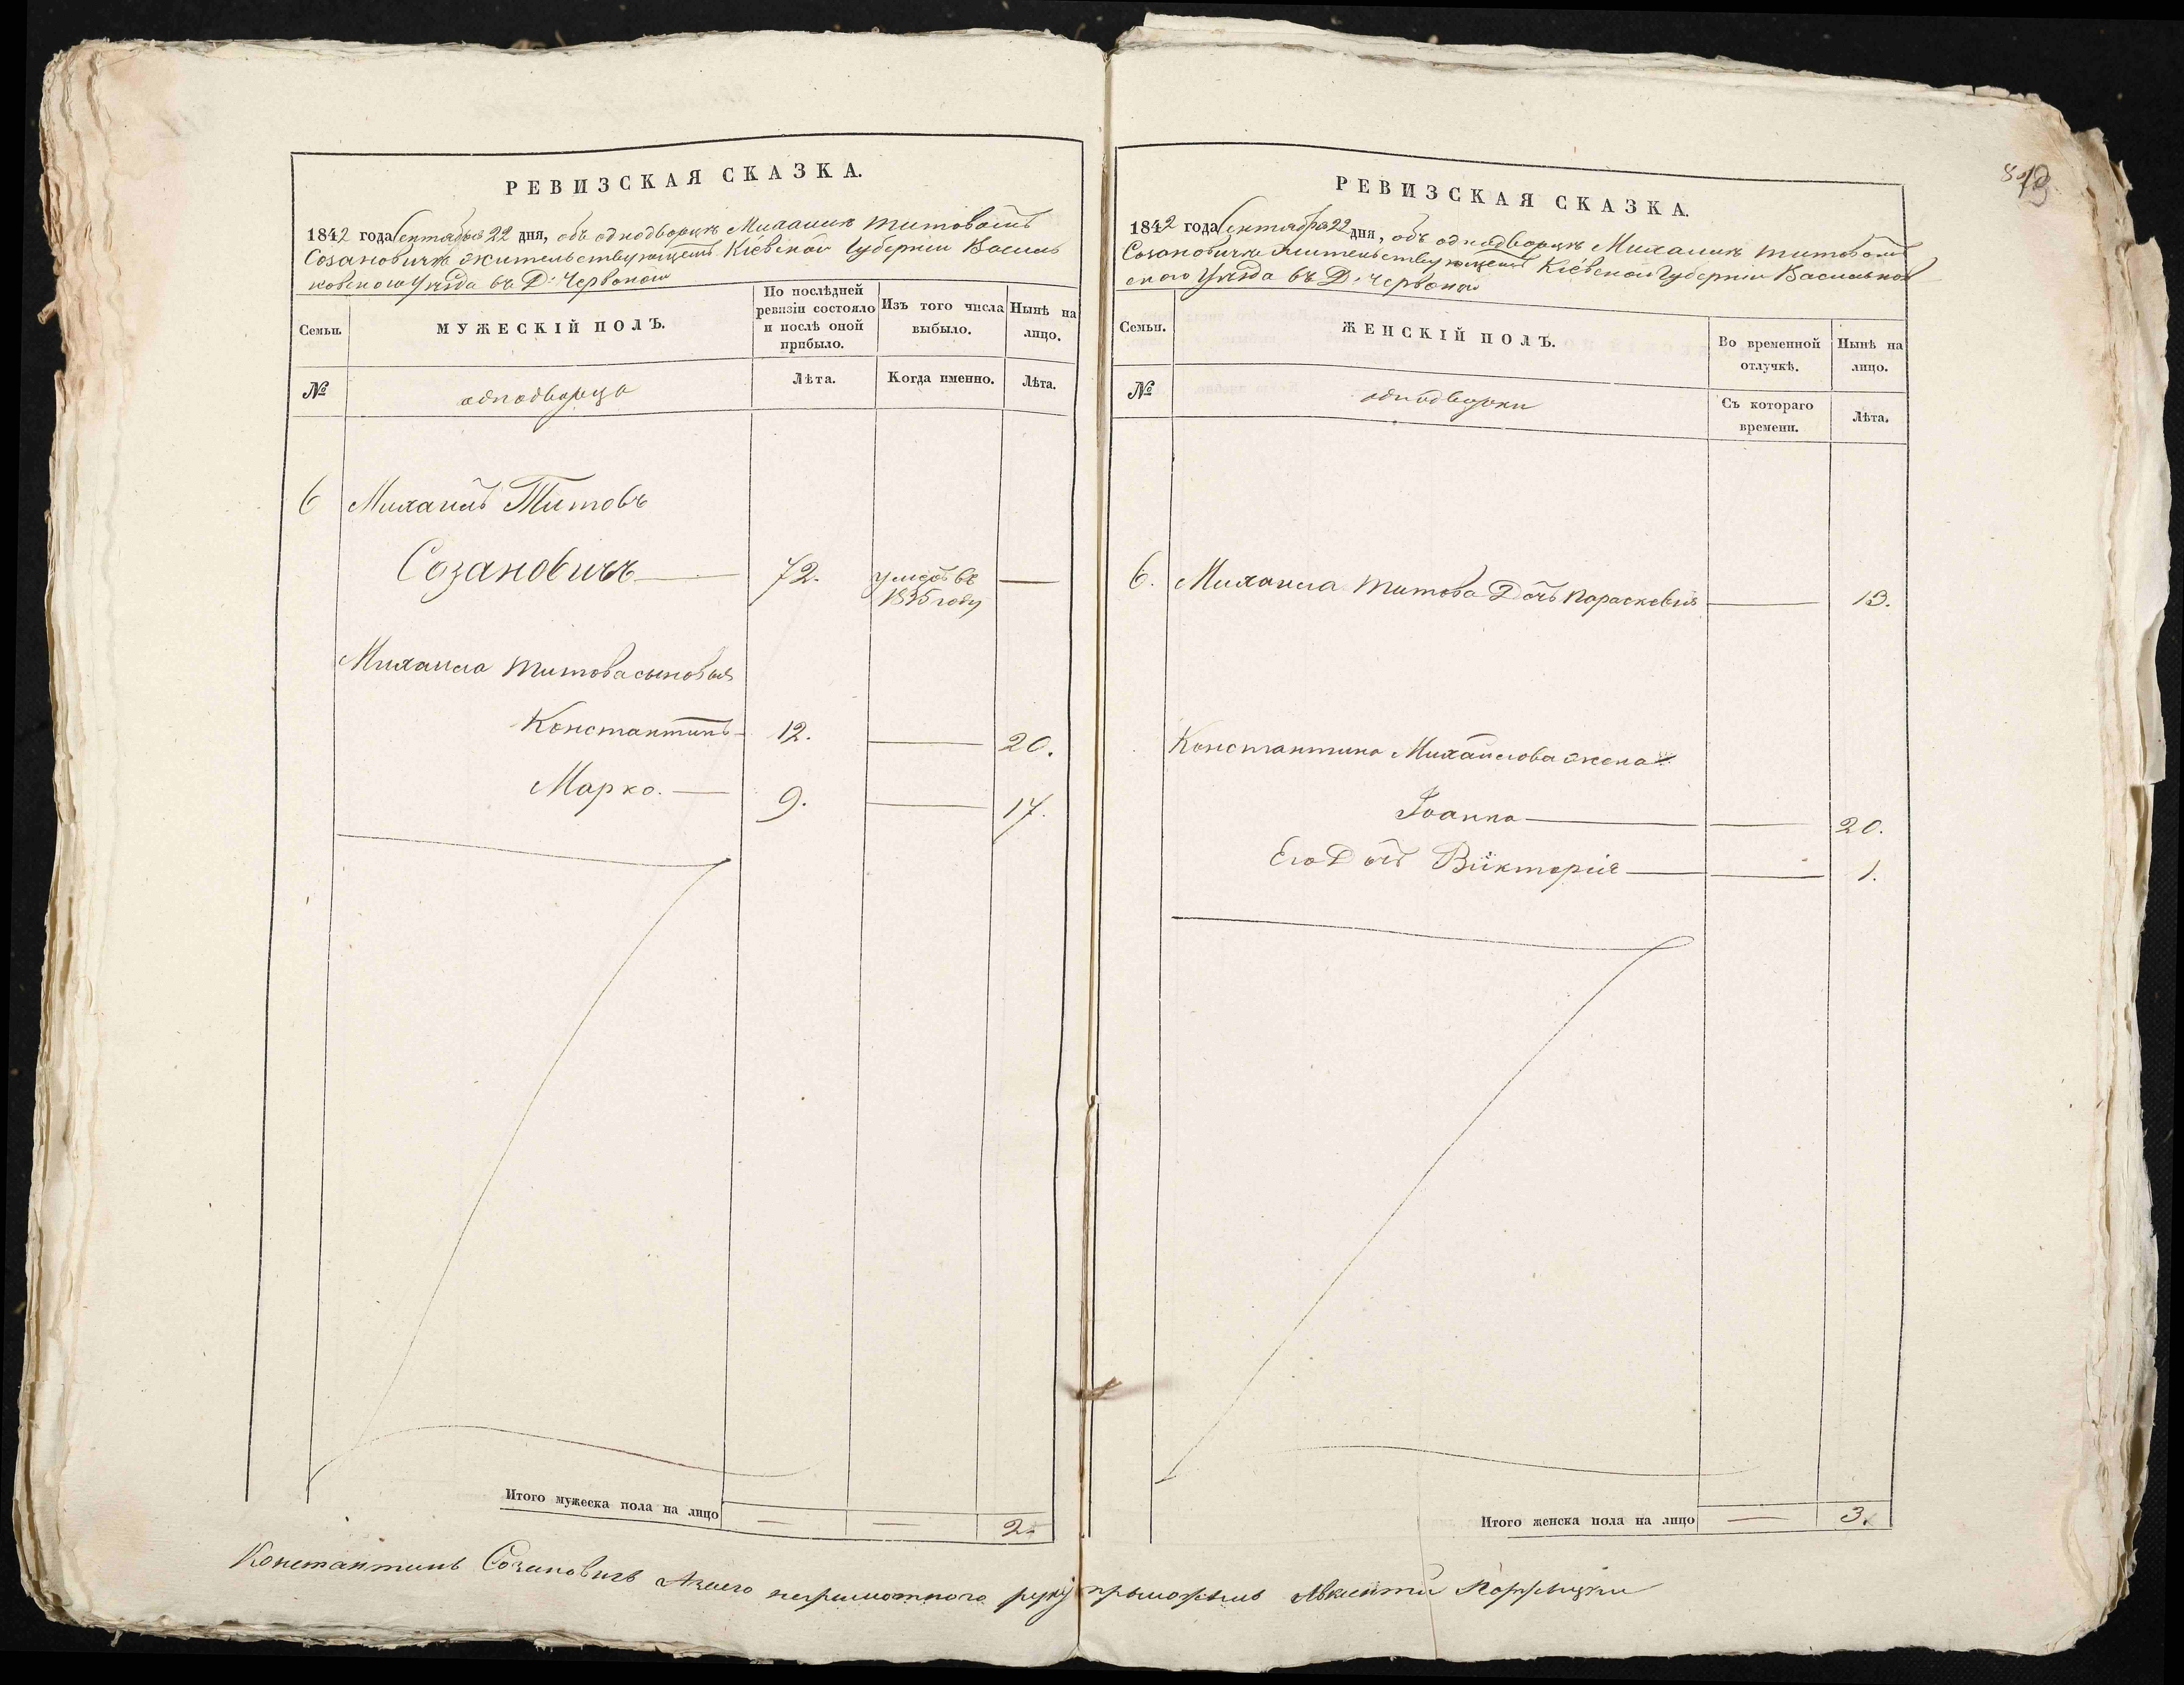 РЕВИЗСКАЯ СКАЗКА.
1842 года Сентября 22 дня, объ однодворцѣ Михаилѣ Титовомъ
Созановичѣ жительствующемъ Кіевской Губерніи Василь
ковского Уѣзда въ Д: Червоной
Семьи.
МУЖЕСКІЙ ПОЛЪ.
По послѣдней ревизіи состояло и послѣ оной прибыло.
Изъ того числа выбыло.
Нынѣ на лицо.
№
однодворцы
Лѣта.
Когда именно.
Лѣта.
6 Михаилъ Титовъ
Созановичъ 72. умеръ въ — 
1835 году
Михаила Титова сыновья
Константинъ 12. — 20.
Марко. — 9. — 17.
Итого мужеска пола на лицо — — 2.
813
РЕВИЗСКАЯ СКАЗКА.
1842 года Сентября 22 дня, объ однодворцѣ Михаилѣ Титовомъ
Созановичѣ жительствующемъ Кіевской Губерніи Васильков
ского Уѣзда въ Д: Червоной
Семьи.
ЖЕНСКІЙ ПОЛЪ.
Во временной отлучкѣ.
Нынѣ на лицо.
№
однодворки
Съ котораго времени.
Лѣта.
6. Михаила Титова Дочь Парасковія — 13.
Константина Михайлова жена
Іоанна — — 20.
Его Дочь Викторія — — 1.
Итого женска пола на лицо — 3.
Константинъ Созановичъ А за его неграмотного руку прыложылъ